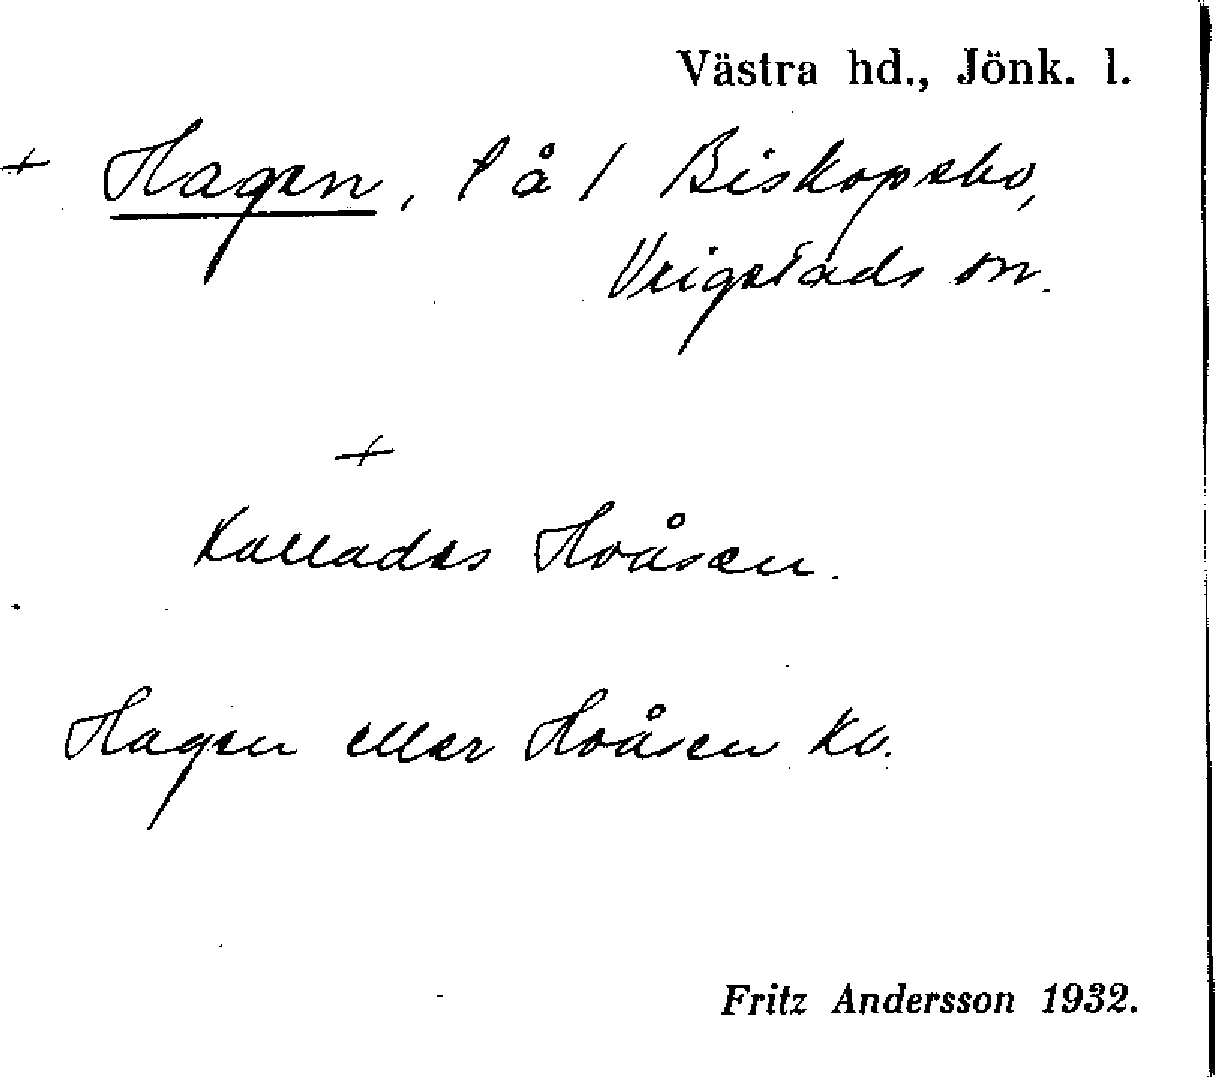 Västra hd., Jönk. l.
+ Hagen, l å / Biskopsbo,
Vrigstads sn.
+
Kallades Hvåsen.
Hagen eller Hvåsen kv.
Fritz Andersson 1932.